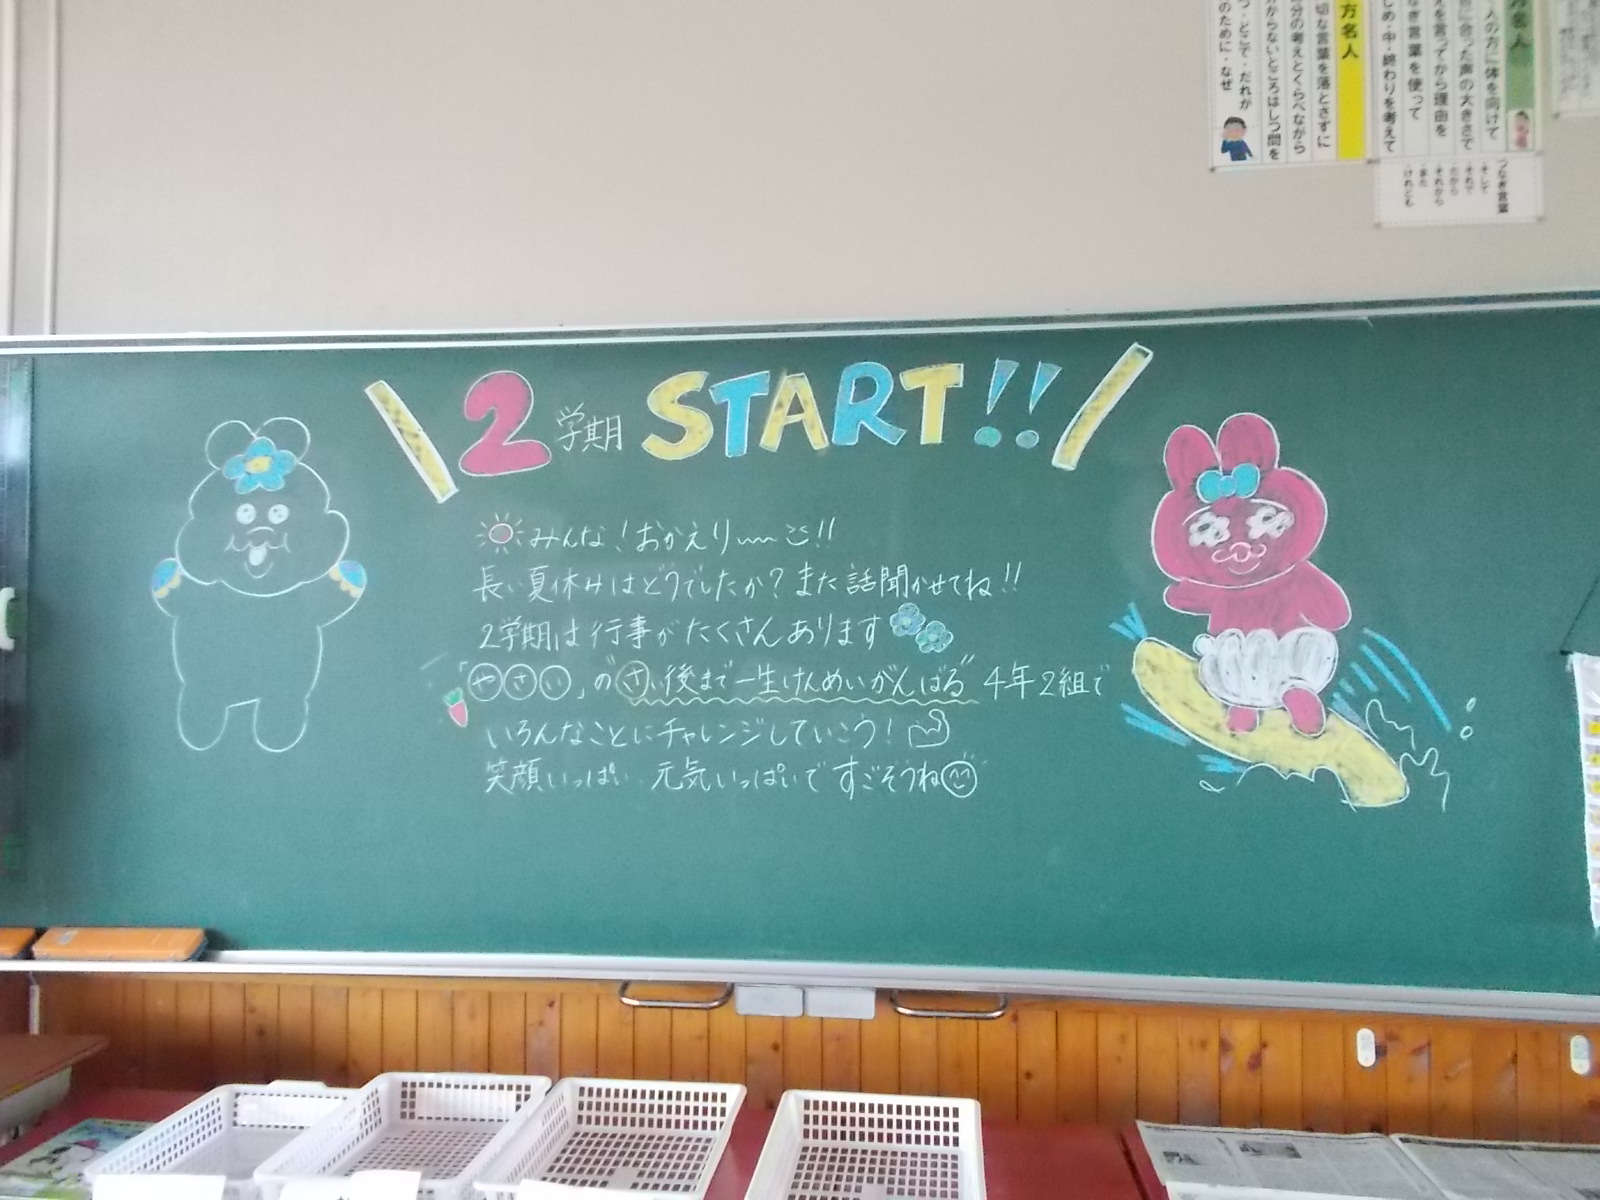 2学期 START!!
みんな!おかえり〜!!
長い夏休みはどうでしたか?また話聞かせてね!!
2学期は行事がたくさんあります
「やさい」の"さい後まで一生けんめいがんばる" 4年2組で
いろんなことにチャレンジしていこう!
笑顔いっぱい 元気いっぱいですごそうね
方名人
人の方に体を向けて
合った声の大きさで
を言ってから理由を
なぎ言葉を使って
じめ・中・終わりを考えて
つなぎ言葉
・そして
・それで
・だから
・それから
・また
・けれども
方名人
切な言葉を落とさずに
分の考えとくらべながら
からないところはしつ問を
つ・どこで・だれが
のために・なぜ